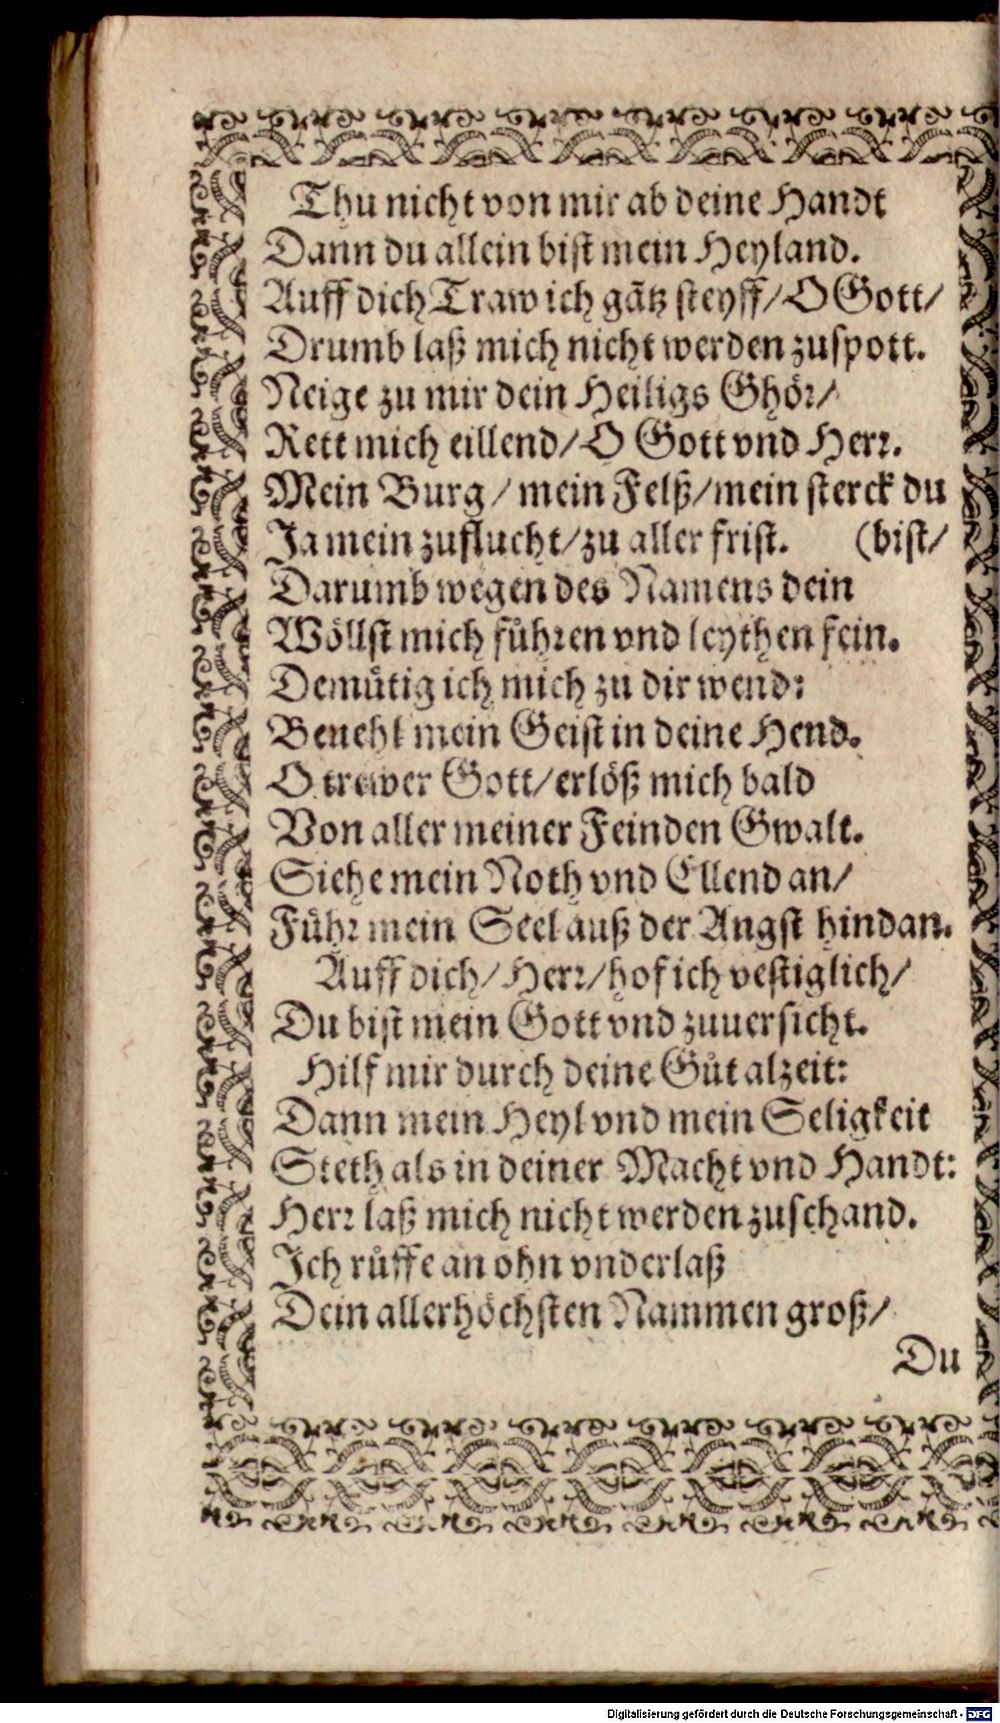 Thu nicht von mir ab deine Handt
Dann du allein bist mein Heyland.
Auff dich Traw ich gãtz steyff/ O Gott/
Drumb laß mich nicht werden zuspott.
Neige zu mir dein Heiligs Ghör/
Rett mich eillend/ O Gott vnd Herr.
Mein Burg / mein Felß/ mein sterck du
Ja mein zuflucht/ zu aller frist. (bist/
Darumb wegen des Namens dein
Wöllst mich führen vnd leythen fein.
Demütig ich mich zu dir wend:
Beuehl mein Geist in deine Hend.
O trewer Gott/ erlöß mich bald
Von aller meiner Feinden Gwalt.
Siehe mein Noth vnd Ellend an/
Führ mein Seel auß der Angst hindan.
Auff dich/ Herr/ hof ich vestiglich/
Du bist mein Gott vnd zuuersicht.
Hilf mir durch deine Güt alzeit:
Dann mein Heyl vnd mein Seligkeit
Steth als in deiner Macht vnd Handt:
Herr laß mich nicht werden zuschand.
Ich rüffe an ohn vnderlaß
Dein allerhöchsten Nammen groß/
Du
Digitalisierung gefördert durch die Deutsche Forschungsgemeinschaft - DFG